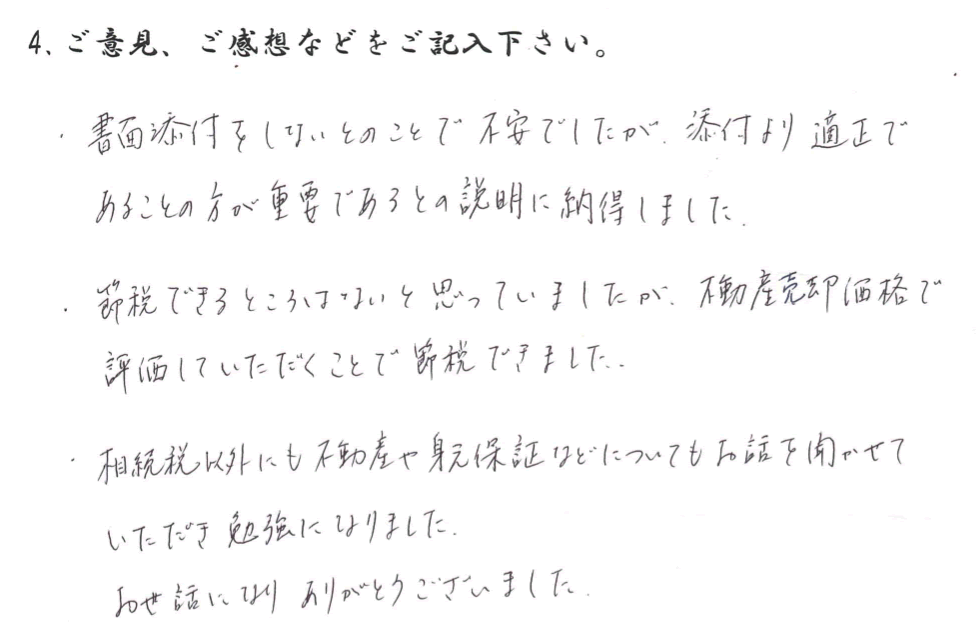 4、ご意見、ご感想などをご記入下さい。
・書面添付をしないとのことで不安でしたが、添付より適正で
あることの方が重要であるとの説明に納得しました。
・節税できるところはないと思っていましたが、不動産売却価格で
評価していただくことで節税できました。
・相続税以外にも不動産や身元保証などについてもお話を聞かせて
いただき勉強になりました。
お世話になりありがとうございました。